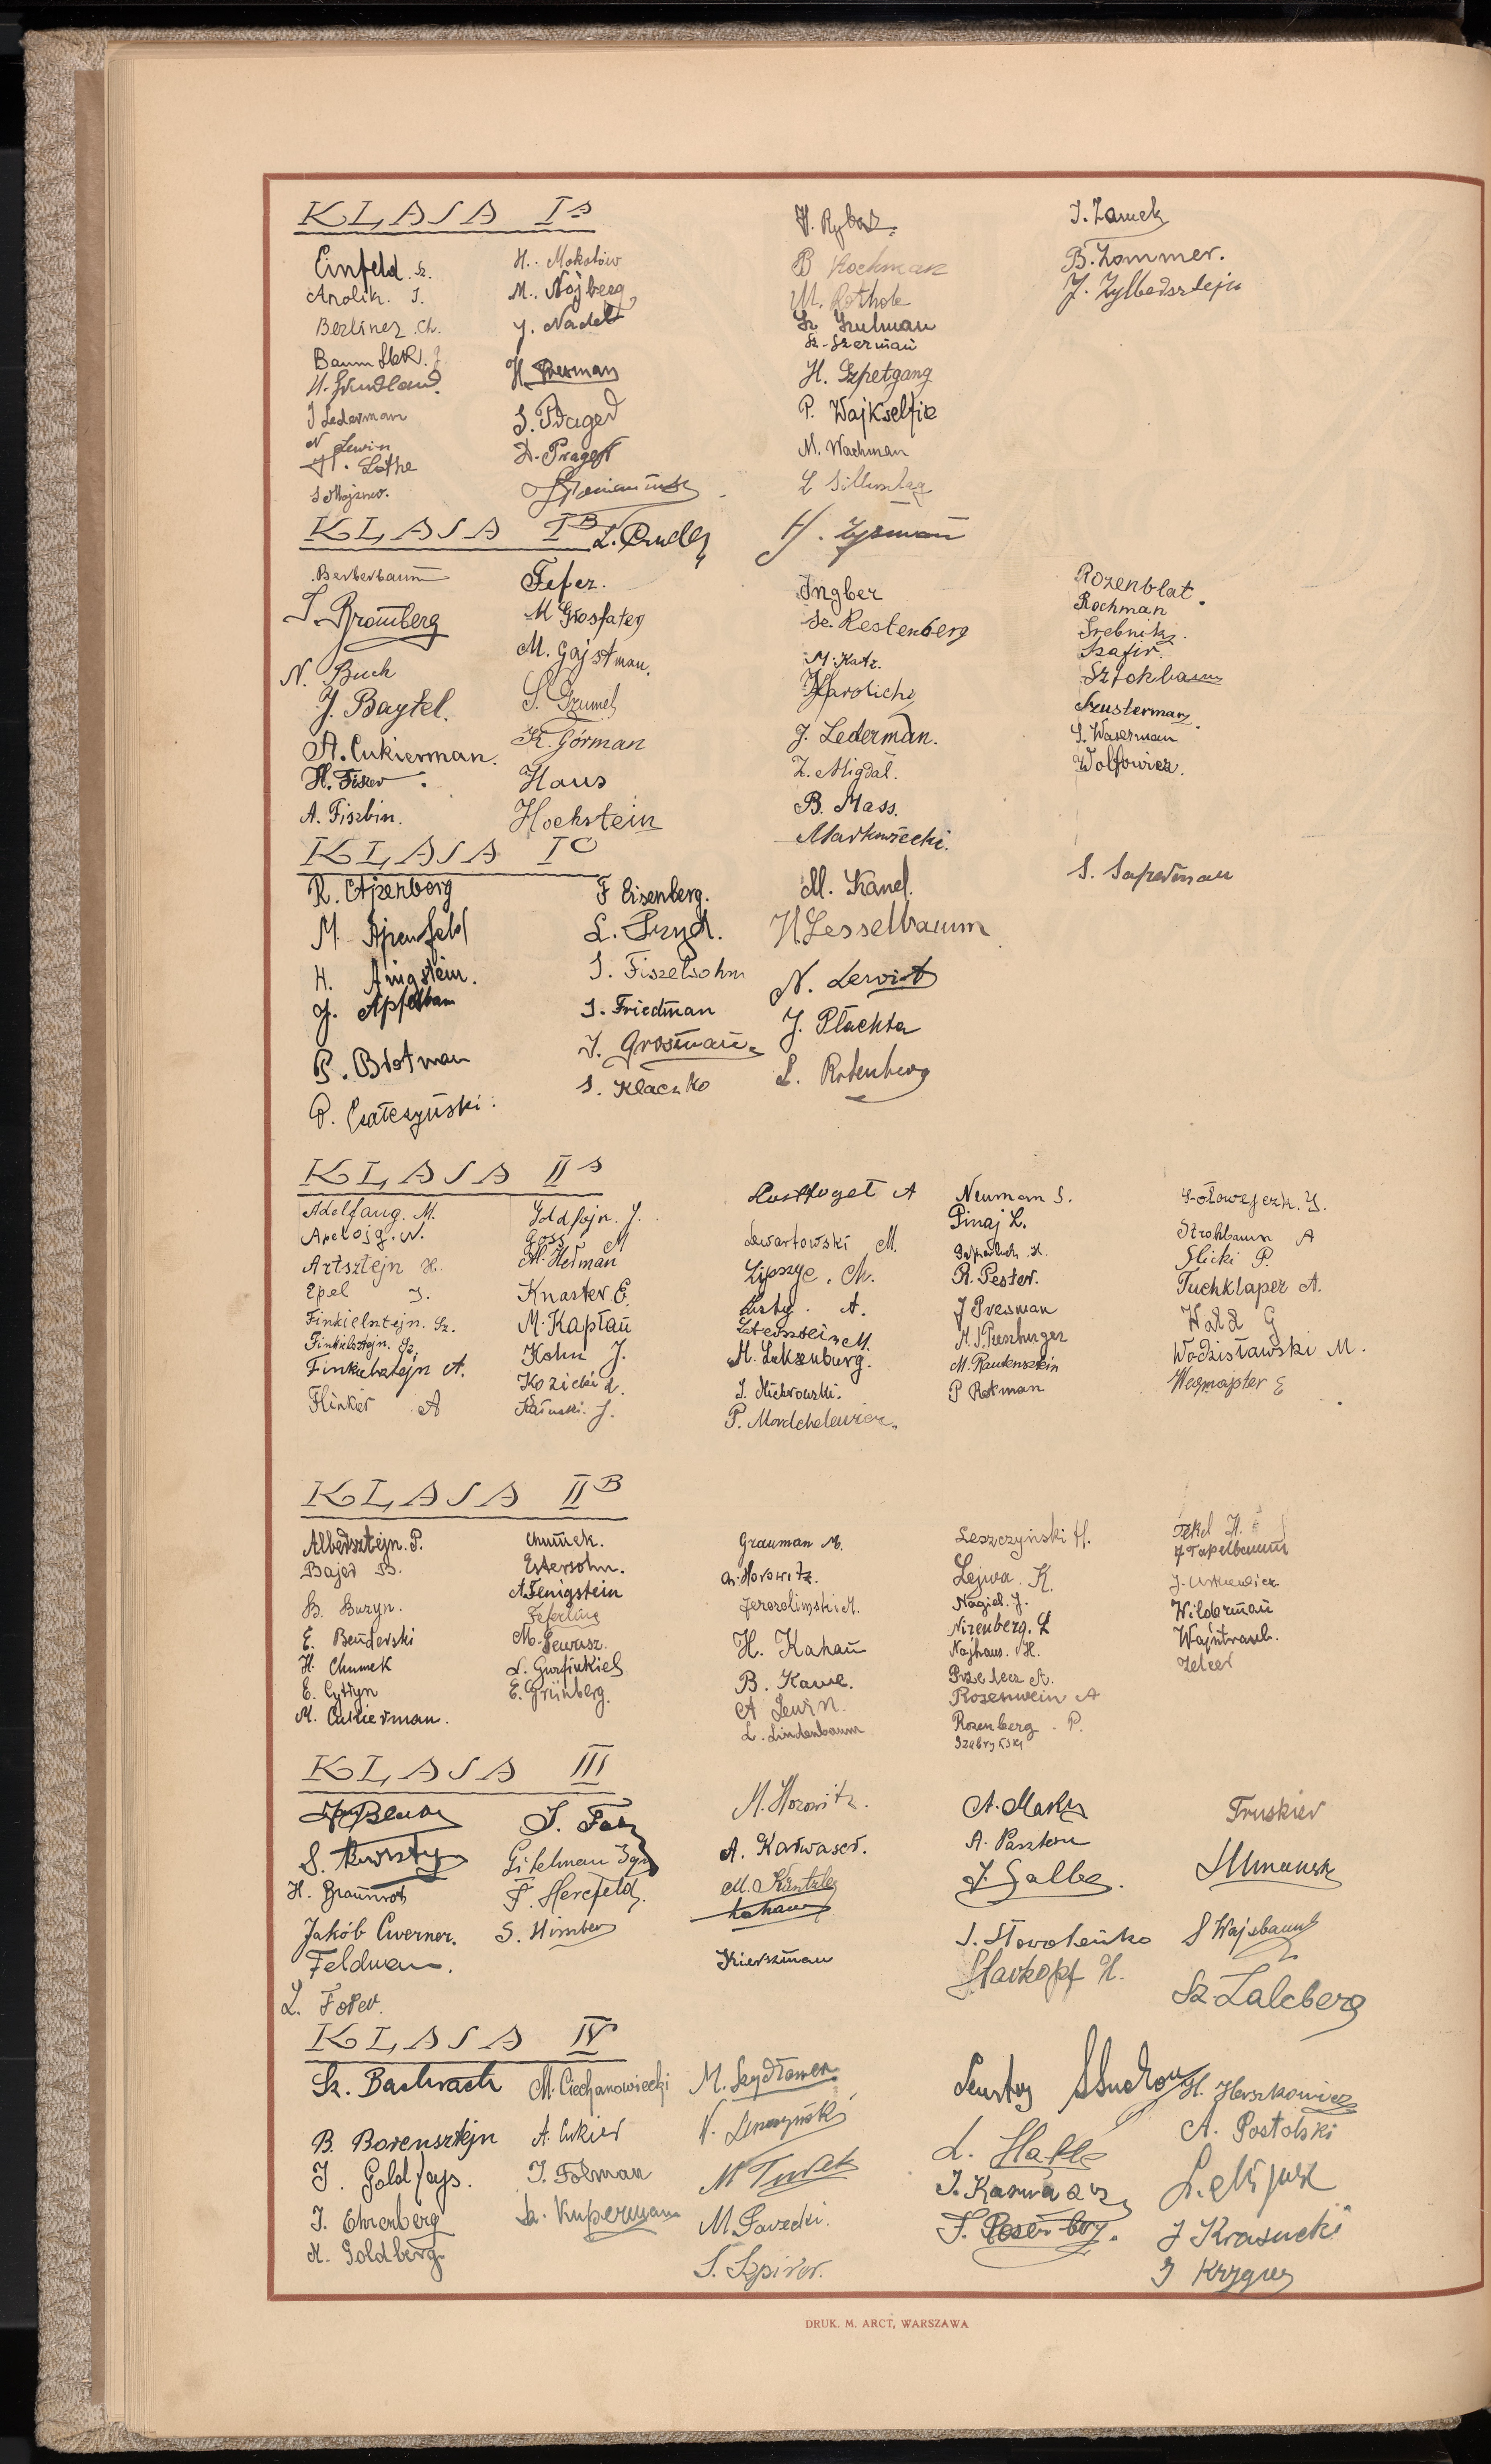 KLASA I A
Einfeld Sz.
Anolik. J.
Berliner Ch.
Baum
J Lederman
N Lewin
H. Lothe
H. Mokotów
M. Nojberg
J. Nadel
H. Presman
S. Prager
D. Prager
L. Prudły
H. Rybak
B Rochman
M. Rothole
Sz Szulman
Sz. Szerman
H. Szpetgang
P. Wajkselfisz
M. Wachman
H. Zysman
J. Zamek
B. Zommer.
J. Zylbersztejn
KLASA I B
Berberbaum
J. Bromberg
N. Buch
J. Baytel.
A. Cukierman.
H. Fiszer
A. Fiszbin.
Fefer.
M Grosfater
M. Gajstman.
S. Grumel
K. Górman
Haus
Hochstein
Ingber
Sz. Kestenberg
M. Katz.
Karolicki
J. Lederman.
Z. Migdał.
B. Mass.
Markowiecki.
Rozenblat.
Rochman
Srebnik
Szafir.
Sztokbaum
Szusterman
S. Waserman
Wolfowicz.
KLASA I C
R. Ajzenberg
M. Ajzenfeld
H. Anigstein.
J. Apfelbam
P. Brotman
P. Czałczyński.
F Eisenberg.
L. Fryd.
J. Fiszelsohn
J. Friedman
J. Grosman
S. Klaczko
M. Kanel.
H. Lesselbaum
N. Lewit
J. Płachta
L. Rotenberg
S. Saperman
KLASA II A
Adelfang. M.
Apelojg. N.
Artsztejn H.
Epel J.
Finkielsztejn. Sz.
Finkielsztejn. Sz.
Finkielsztejn A.
Flinker A
Goldfajn. J.
Goss M
M. Herman
Knaster E.
M. Kapłan
Kohn J.
Kozicki L.
Lewartowski M.
Lipszyc. Ch.
M. Luksenburg.
P. Mordchelewicz.
Neuman S.
Pinaj L.
R. Pester.
J Presman
M. Rautensztein
P Rotman
Sołowejczk. J.
Strohbaum A
Slicki P.
Tuchklaper A.
Wald G
Wodzisławski M.
Wegmajster E
KLASA II B
Albersztejn. P.
Bajer B.
B. Buryn.
E. Benderski
H. Chumek
E. Cytryn
M. Cukierman.
Chumek.
Estersohn.
A. Fenigstein
Feferling
M. Gewisz.
L. Gurfinkiel
E. Grünberg.
Grauman M.
Ch. Horowitz.
Jerozolimski M.
H. Kahan
B. Kawe.
A Lewin.
L. Lindenbaum
Leszczyński H.
Lejwa. K.
Nagiel. J.
Nirenberg. L
Najhaus. H.
Przelecz A.
Rosenwein A
Rozenberg. P.
Szabryński
Tekel H.
J Tapelbaum
J. Urkiewicz
Wilderman
Wajntraub.
Zelcer
KLASA III
S. Bursztyn
H. Braunrot
Jakób Cwerner.
Feldman.
L. Forer.
Gitelman Ign
F. Hercfeld.
S. Himber
M. Horowitz.
A. Karwaser.
M. Küntzler
Kahan
Kierszman
A. Marku
A. Pasztein
J. Salbe.
J. Słoboleńko
Starkopf H.
Truskier
S Wajsbaum
Sz. Zalcberg
KLASA IV
Sz. Bachrach
B. Borensztejn
J. Goldfajs.
J. Ehrenberg
H. Goldberg.
M. Ciechanowiecki
A. Cukier
J. Folman
Sz. Kuperman
M. Szydłower
N. Lenczyński
M Turek
M. Sawecki.
S. Szpiro.
L. Halle
J. Karwasz
F. Rosenberg.
H. Herszkowicz
A. Postolski
J Krasucki
J Krygier
DRUK. M. ARCT, WARSZAWA